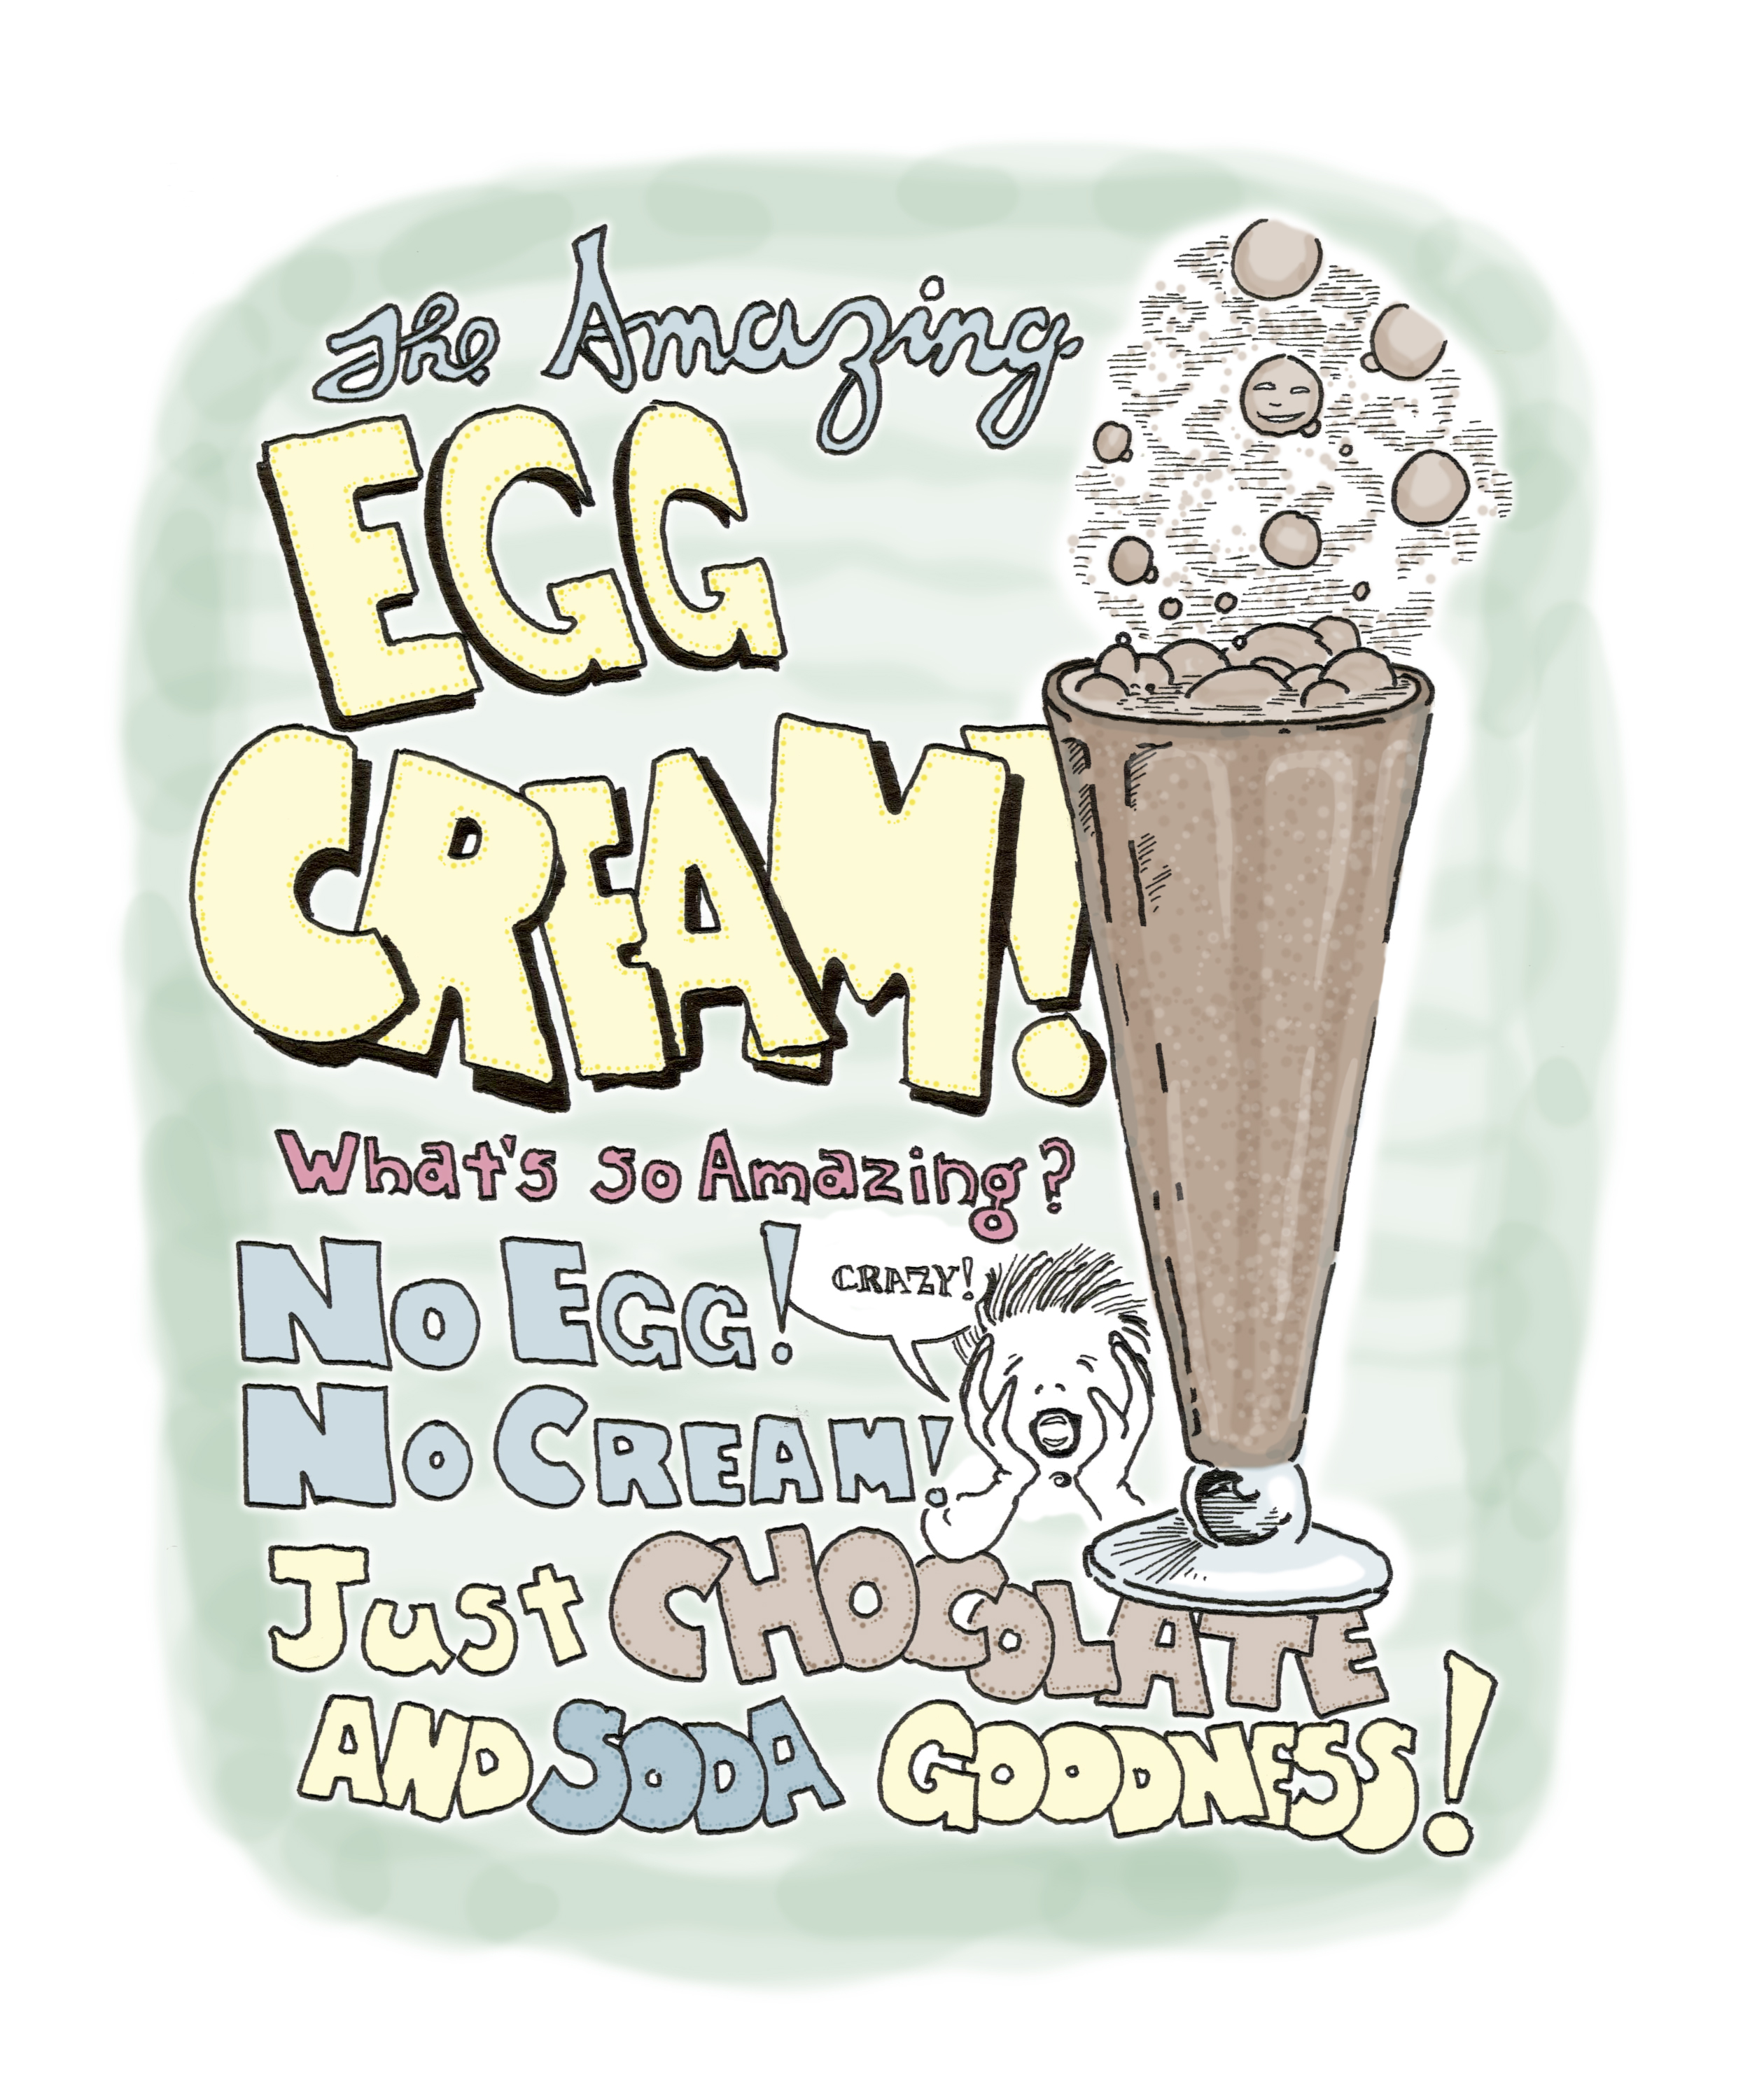 The Amazing
EGG
CREAM!
What's so Amazing?
No EGG!
CRAZY!
No CREAM!
Just CHOCOLATE
AND SODA GOODNESS!